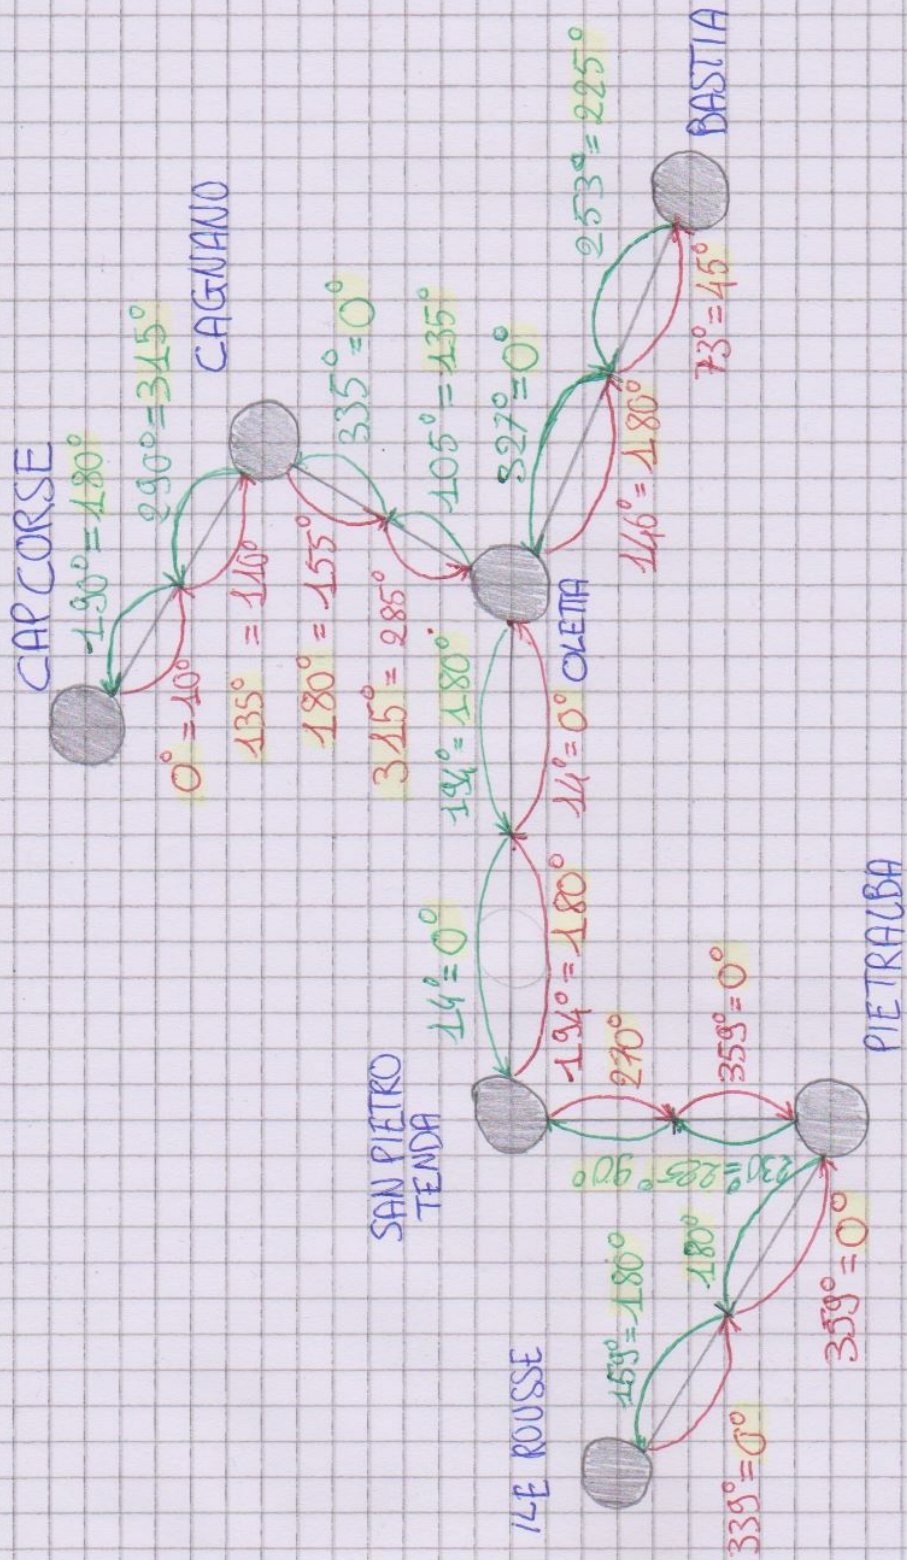 CAP CORSE
190° = 180°
290° = 315°
CAGNANO
0° = 10°
135° = 110°
180° = 155°
315° = 285°
335° = 0°
105° = 135°
327° = 0°
253° = 225°
BASTIA
146° = 180°
73° = 45°
OLETTA
194° = 180°
14° = 0°
14° = 0°
194° = 180°
SAN PIETRO
TENDA
270°
359° = 0°
90°
230° = 225°
PIETRALBA
ILE ROUSSE
159° = 180°
180°
339° = 0°
359° = 0°